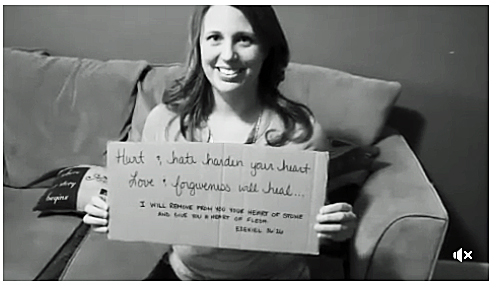 Hurt & hate harden your heart
Love & forgiveness will heal...
I WILL REMOVE FROM YOU YOUR HEART OF STONE
AND GIVE YOU A HEART OF FLESH
EZEKIEL 36:26
story
begins